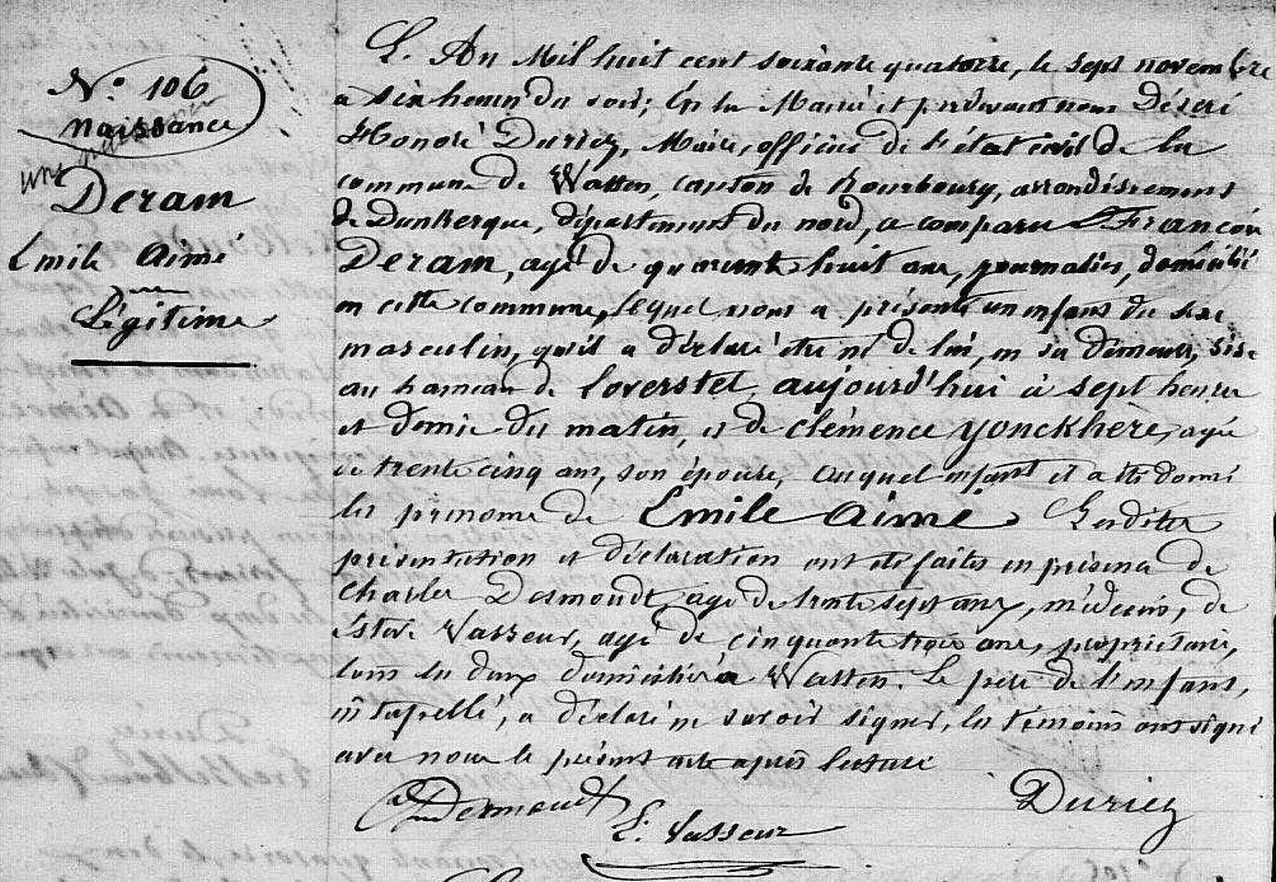 N.o 106
naissance
Deram
Emile Aimé
Légitime
L'An Mil huit cent soixante quatorze, le sept novembre
à six heures du soir; En la Mairie et pardevant nous Désiré
Honoré Duriez, Maire, officier de l'état civil de la
commune de Watten, canton de Bourbourg, arrondissement
de Dunkerque, département du nord, a comparu François
Deram, agé de quarante huit ans, journalier, domicilié
en cette commune, lequel nous a présenté un enfant du sexe
masculin, qu'il a déclaré être né de lui, en sa demeure, sise
au hameau de Loverstel, aujourd'hui à sept heures
et demie du matin, et de Clémence Yonckhère, agée
de trente cinq ans, son épouse, auquel enfant il a été donné
les prénoms de Emile Aimé. Lesdites
présentation et déclaration ont été faites en présence de
Charles Desmoudt, agé de trente sept ans, médecin, de
Vasseur, agé de cinquante trois ans, propriétaire,
tous les deux domiciliés à Watten. Le père de l'enfant,
interpellé, a déclaré ne savoir signer, les témoins ont signé
avec nous le présent acte après lecture
Duriez
E. Vasseur